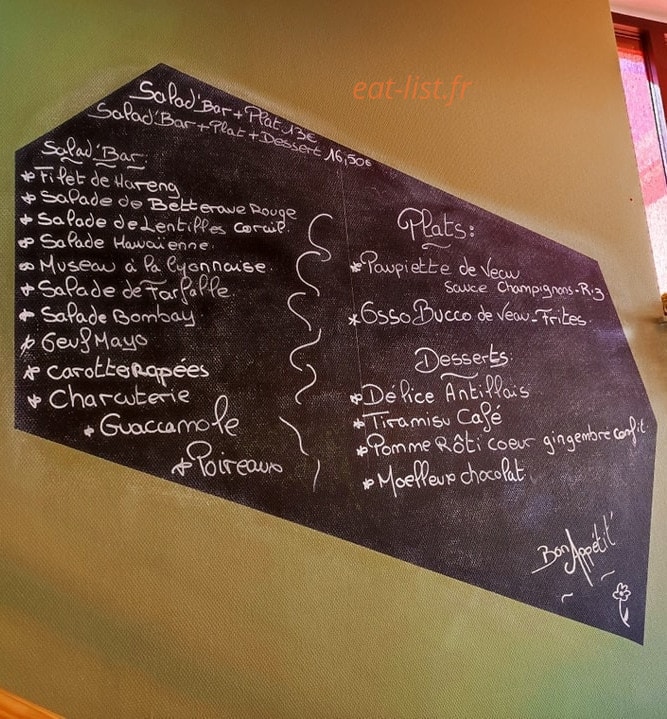 eat-list.fr
Salad'Bar + Plat 13€
Salad'Bar + Plat + Dessert 16,50€
Salad'Bar:
* Filet de Hareng
* Salade de Betterave Rouge
* Salade de Lentilles corail.
* Salade Hawaïenne.
* Museau à la lyonnaise.
* Salade de Farfalle
* Salade Bombay
* Oeuf Mayo
* Carotte Rapées
* Charcuterie
* Guaccamole
* Poireaux
Plats:
* Paupiette de Veau
Sauce Champignons - Riz
* Osso Bucco de Veau - Frites.
Desserts:
* Délice Antillais
* Tiramisu Café
* Pomme Rôti coeur gingembre confit.
* Moelleux chocolat.
Bon Appétit'